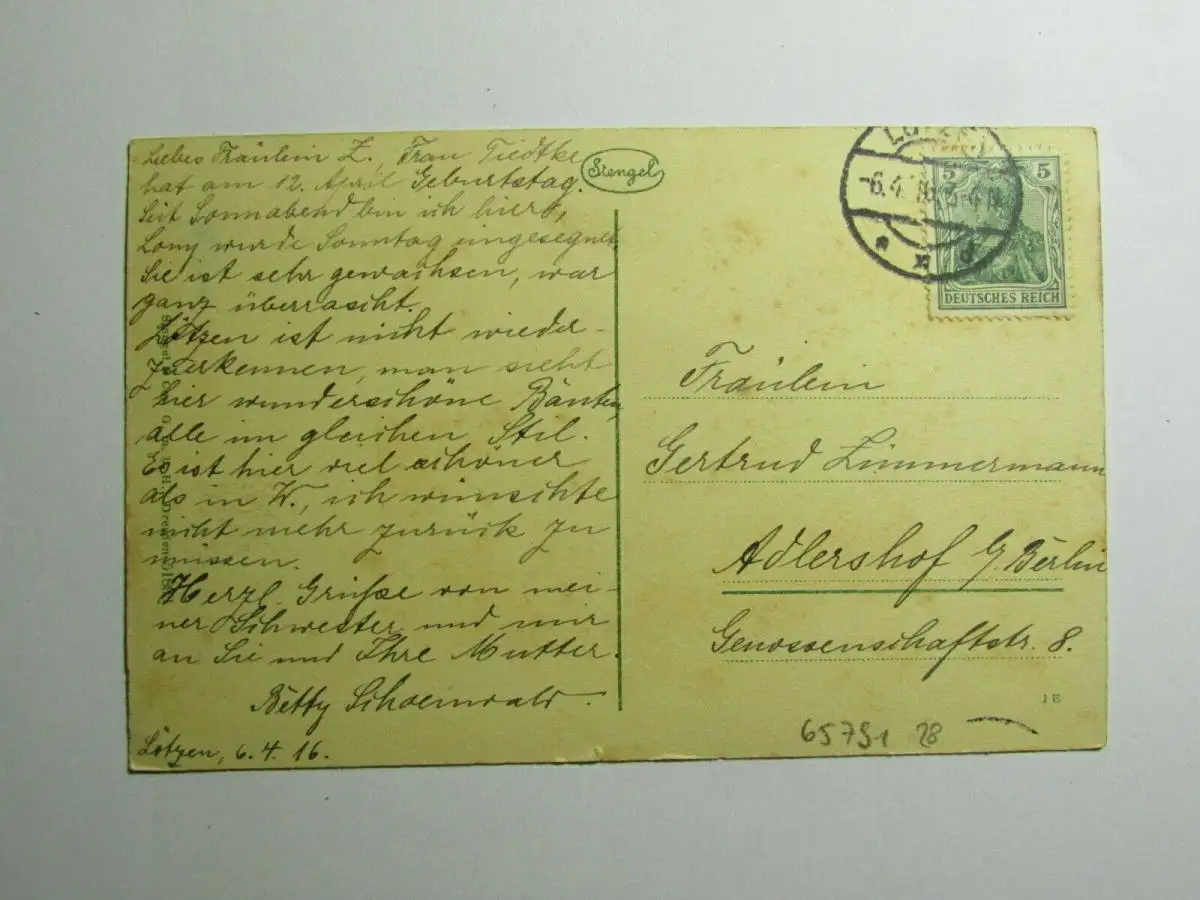 Liebes Fräulein Z., Frau Tiedtke
hat am 12. April Geburtstag.
Seit Sonnabend bin ich hier,
Lony wurde Sonntag eingesegnet
Sie ist sehr gewachsen, war
ganz überrascht.
Lötzen ist nicht wieder-
zuerkennen, man sieht
hier wunderschöne Bauten,
alle im gleichen Stil.
Es ist hier viel schöner
als in W., ich wünschte
nicht mehr zurück zu
müssen.
Herzl. Grüße von mei-
ner Schwester und mir
an Sie und Ihre Mutter.
Betty Schoenwald.
Lötzen, 6.4.16.
Stengel
LÖTZEN
-6.4.16.
* d
5 5
DEUTSCHES REICH
Fräulein
Gertrud Zimmermann
Adlershof b/Berlin
Genossenschaftstr. 8.
65791 28